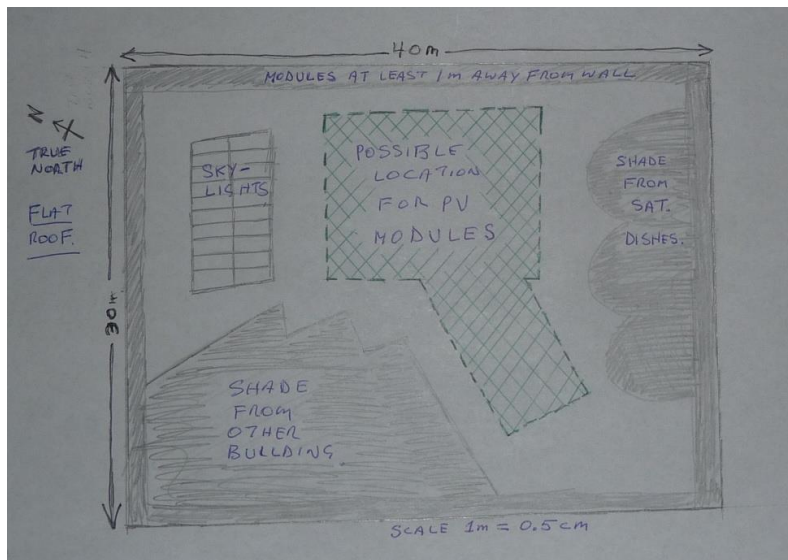 40m
MODULES AT LEAST 1m AWAY FROM WALL
N
TRUE
NORTH
FLAT
ROOF.
30m
SKY-
LIGHTS
POSSIBLE
LOCATION
FOR PV
MODULES
SHADE
FROM
SAT.
DISHES.
SHADE
FROM
OTHER
BUILDING
SCALE 1m = 0.5cm